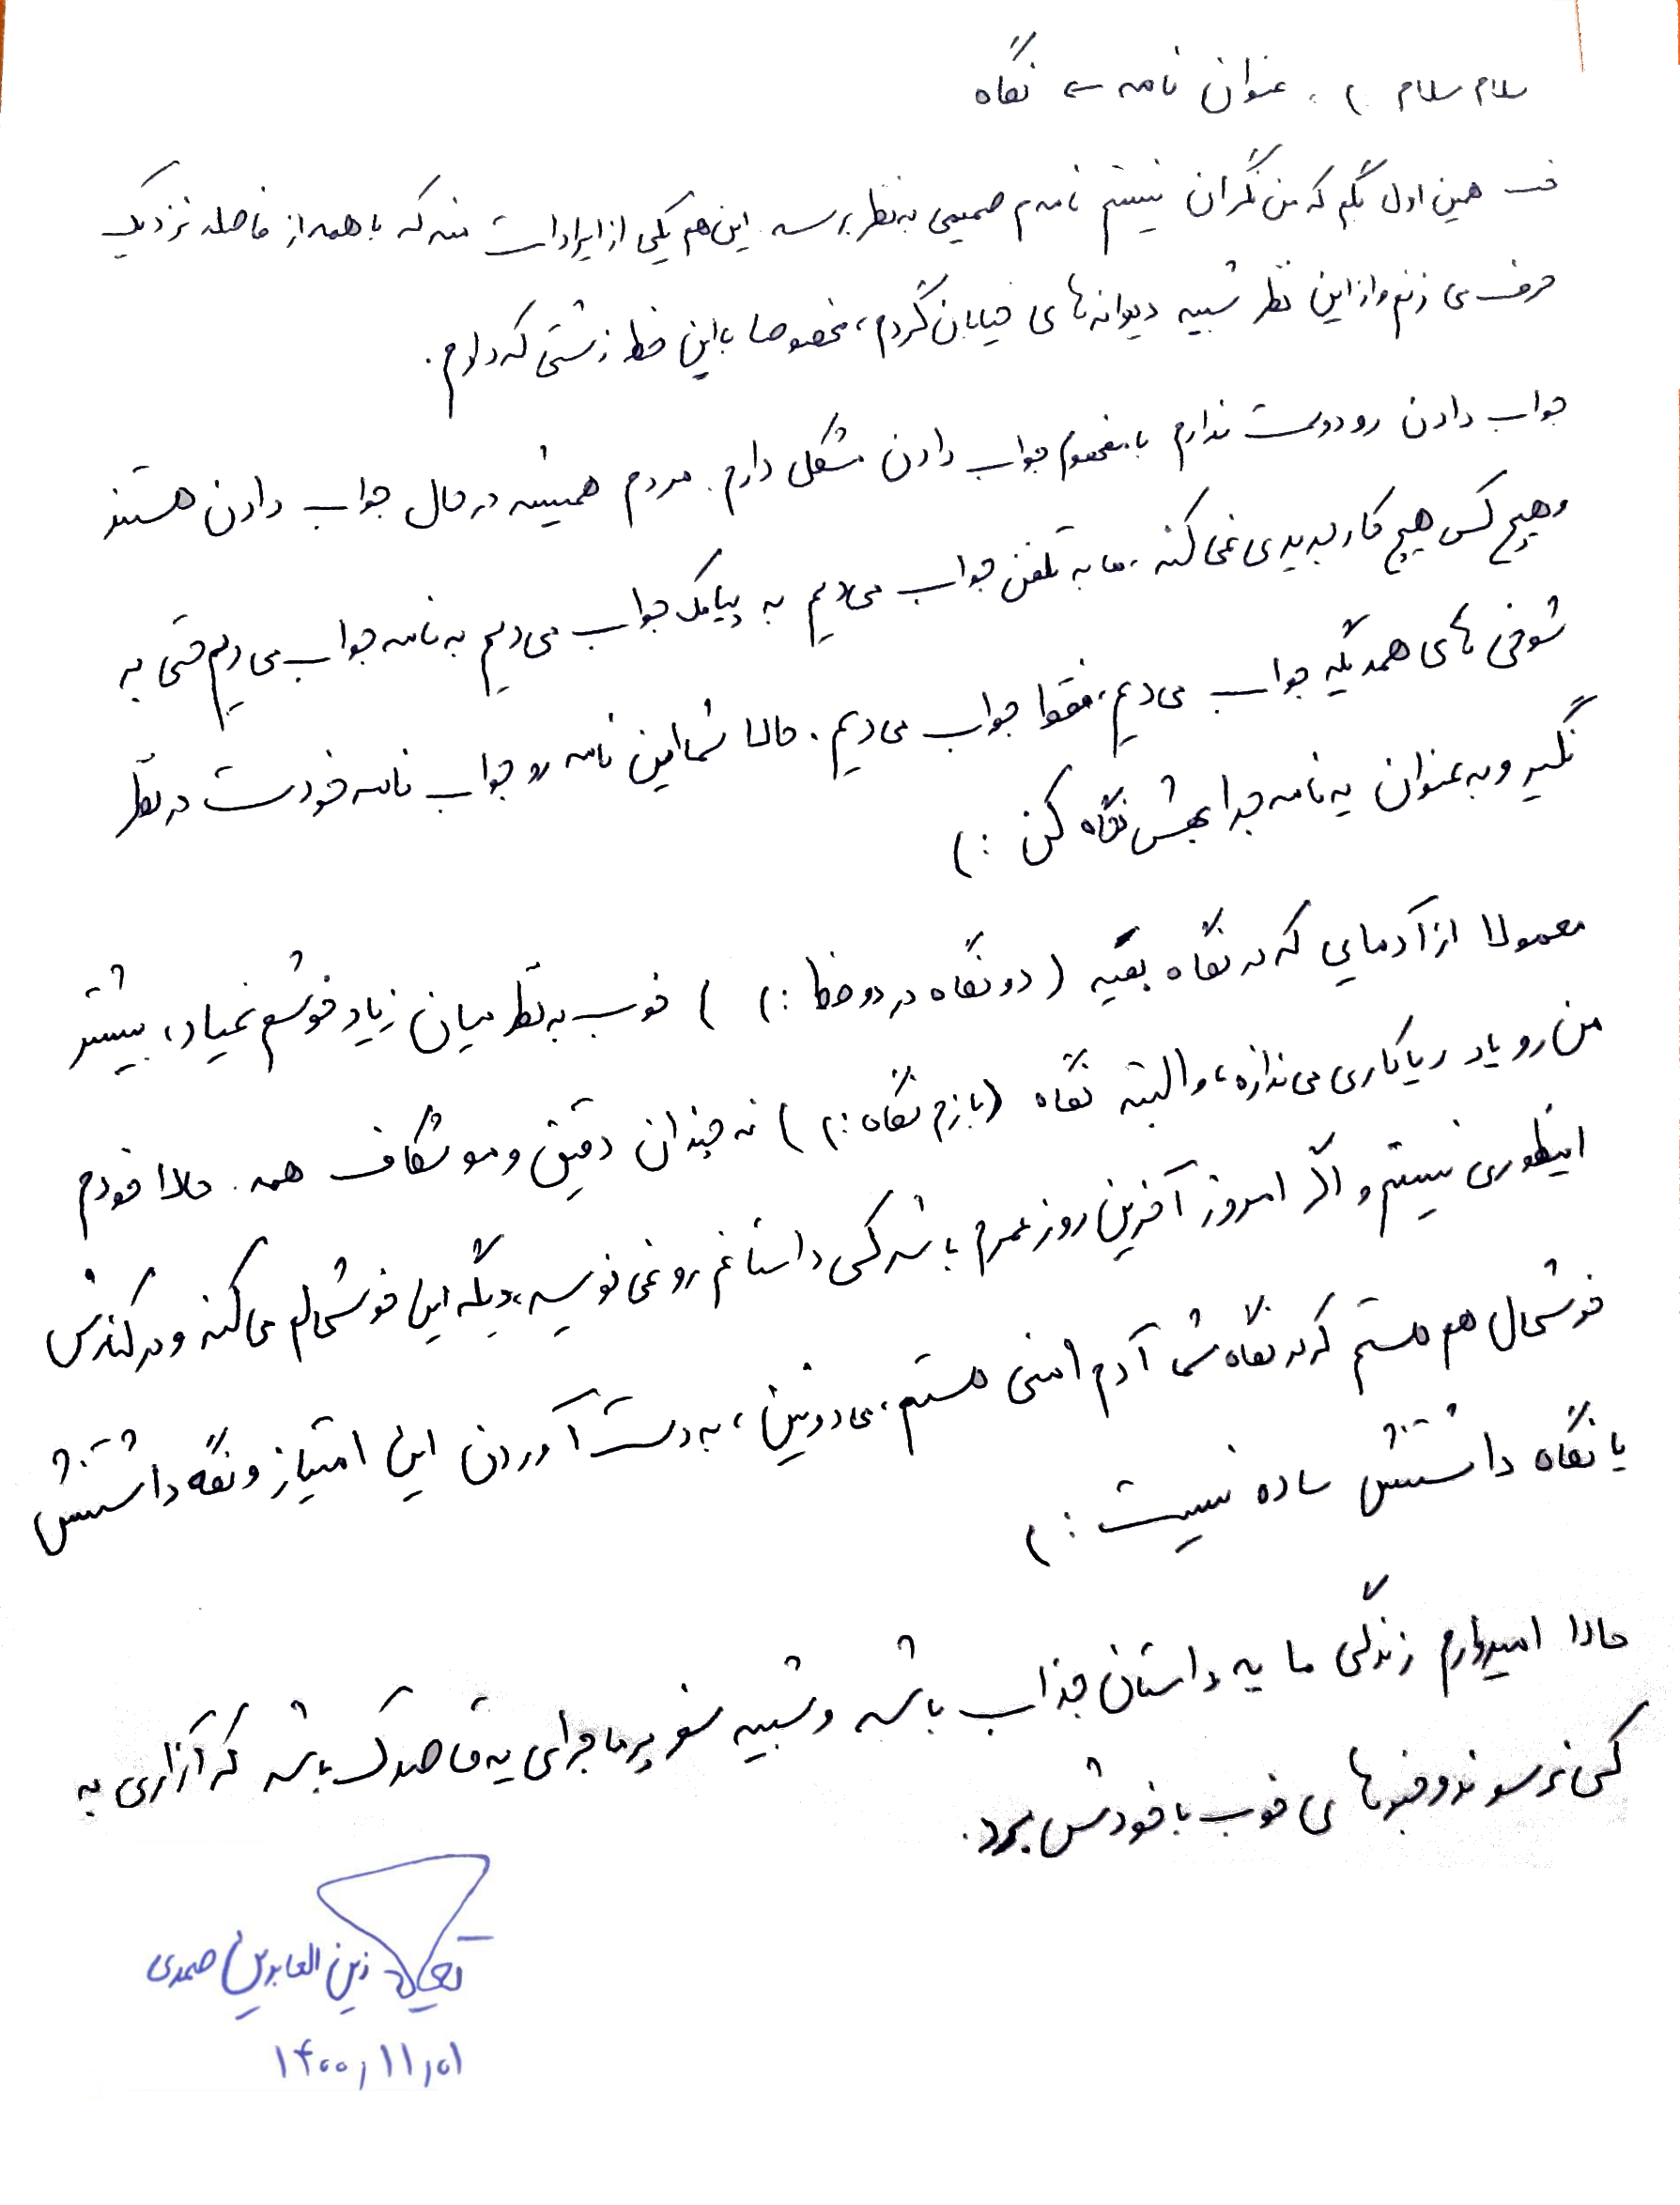 سلام سلام :) . عنوان نامه ← نگاه
خب همین اول بگم که من نگران نیستم نامه‌م صمیمی به نظر برسه. این هم یکی از ایرادات منه که با همه از فاصله نزدیک
حرف می زنم و از این نظر شبیه دیوانه های خیابان گردم، مخصوصا با این خط زشتی که دارم.
جواب دادن رو دوست ندارم با مفهوم جواب دادن مشکل دارم. مردم همیشه در حال جواب دادن هستند
و هیچ کس هیچ کار جدیدی نمی کنه. ما به تلفن جواب می‌دیم به پیامک جواب می‌دیم به نامه جواب می‌دیم حتی به
شوخی های همدیگه جواب می‌دیم، فقط جواب می‌دیم. حالا شما این نامه رو جواب نامه خودت در نظر
نگیر و به عنوان یه نامه جدا بهش نگاه کن :)
معمولا از آدمایی که در نگاه بقیه (دو نگاه در دو خط :) ) خوب به نظر میان زیاد خوشم نمیاد، بیشتر
من رو یاد ریاکاری می‌ندازه، و البته نگاه (بازم نگاه :) ) نه چندان دقیق و موشکاف همه. حالا خودم
اینطوری نیستم و اگر امروز آخرین روز عمرم باشه کسی داستانم رو نمی نویسه، دیگه این خوشحالم می کنه و در کنارش
خوشحال هم هستم که در نگاه شما آدم امنی هستم، می‌دونین، به دست آوردن این امتیاز و نگه داشتنش
یا نگاه داشتنش ساده نیست :)
حالا امیدوارم زندگی ما یه داستان جذاب باشه و شبیه سفر پرماجرای یه قاصدک باشه که آزاری به
کسی نرسونه و خبرهای خوب با خودش ببرد.
زین العابدین صمدی
۱۴۰۰،۱۱،۰۱